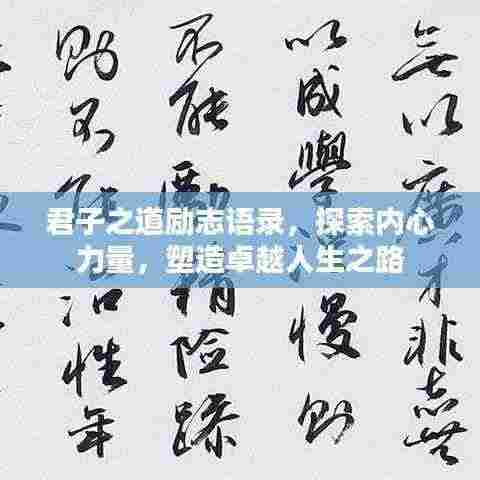 君子之道励志语录，探索内心
力量，塑造卓越人生之路
無以廣才非志無
以成學慢則
不能勵精險躁
則不能治性年